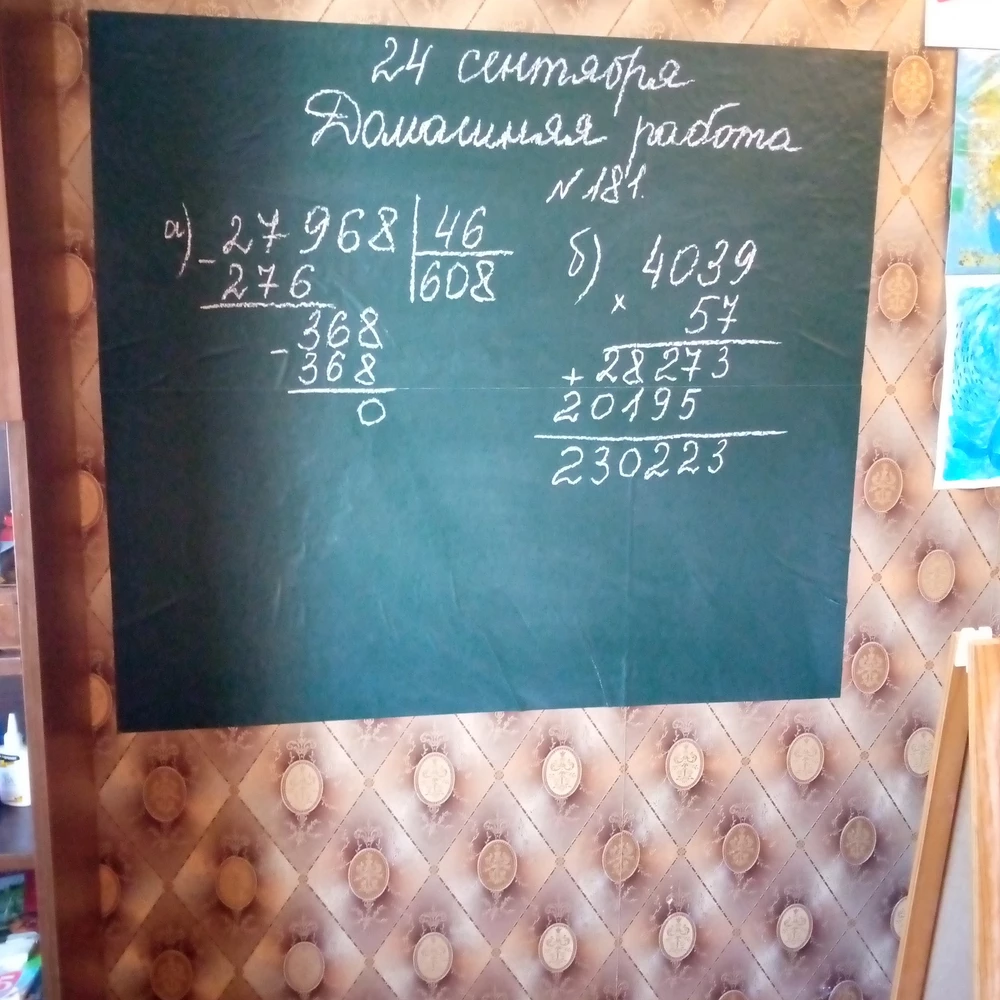 24 сентября
Домашняя работа
№ 181.
а) - 27968 | 46
276 608
368
- 368
0
б) 4039
× 57
28273
+ 20195
230223